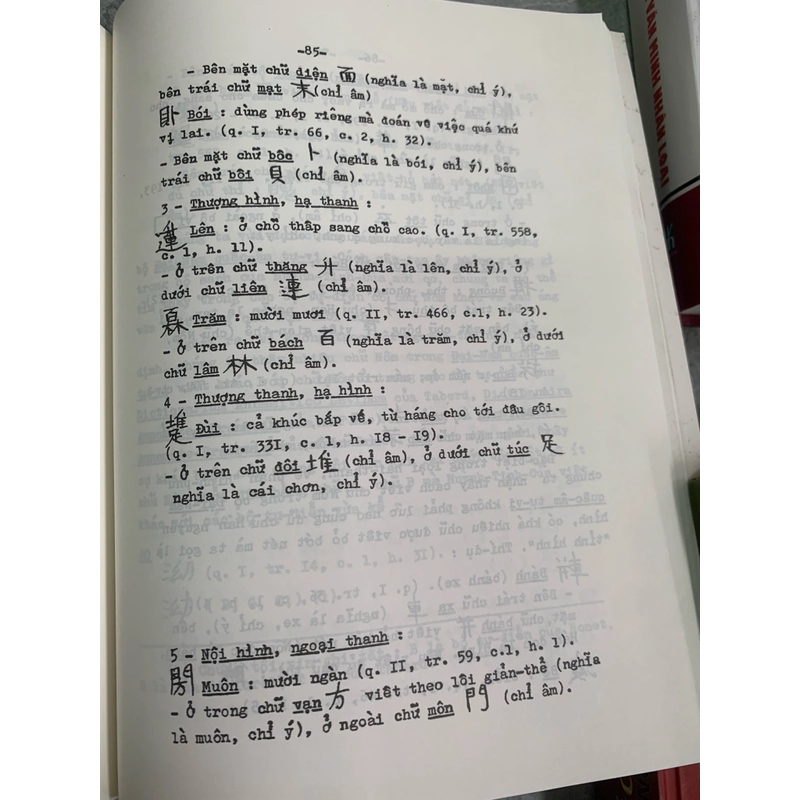 -85-
- Bên mặt chữ diện 面 (nghĩa là mặt, chỉ ý),
bên trái chữ mạt 末 (chỉ âm)
Bói : dùng phép riêng mà đoán về việc quá khứ
vị lai. (q. I, tr. 66, c. 2, h. 32).
- Bên mặt chữ bốc 卜 (nghĩa là bói, chỉ ý), bên
trái chữ bối 貝 (chỉ âm).
3 - Thượng hình, hạ thanh :
Lên : ở chỗ thấp sang chỗ cao. (q. I, tr. 558,
c. 1, h. 11).
- ở trên chữ thăng 升 (nghĩa là lên, chỉ ý), ở
dưới chữ liên 連 (chỉ âm).
Trăm : mười mươi (q. II, tr. 466, c.1, h. 23).
- ở trên chữ bách 百 (nghĩa là trăm, chỉ ý), ở dưới
chữ lâm 林 (chỉ âm).
4 - Thượng thanh, hạ hình :
Đùi : cả khúc bắp vế, từ háng cho tới đầu gối.
(q. I, tr. 33I, c. 1, h. I8 - I9).
- ở trên chữ đôi 堆 (chỉ âm), ở dưới chữ túc 足
nghĩa là cái chơn, chỉ ý).
5 - Nội hình, ngoại thanh :
Muôn : mười ngàn (q. II, tr. 59, c.1, h. 1).
- ở trong chữ vạn 万 viết theo lối giản-thể (nghĩa
là muôn, chỉ ý), ở ngoài chữ môn 門 (chỉ âm).
VĂN MINH NHÂN LOẠI